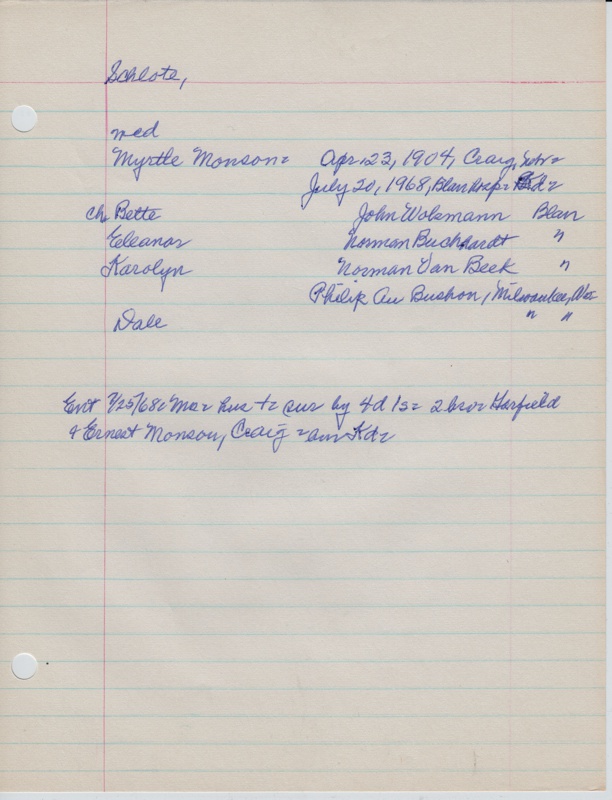 Schlote,
med
Myrtle Monson= Apr. 23, 1904, Craig, Nebr=
July 20, 1968, Blair Hosp= Kd=
ch Bette John Wolsmann Blair
Eleanor Norman Buchhardt "
Karolyn Norman Van Beek "
Philip Au Bushon, Milwaukee, Wis
Dale " "
Ent 7/25/68: Mo= hus += sur by 4d 1s= 2bro= Garfield
& Ernest Monson, Craig = bur Kd=